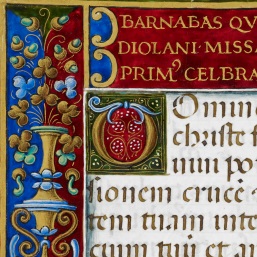 BARNABAS QV
DIOLANI · MISSA
PRIM⁹ CELBRA
Omin
christe f
num po
lionem cruce
tem tuam inte
cum tui et